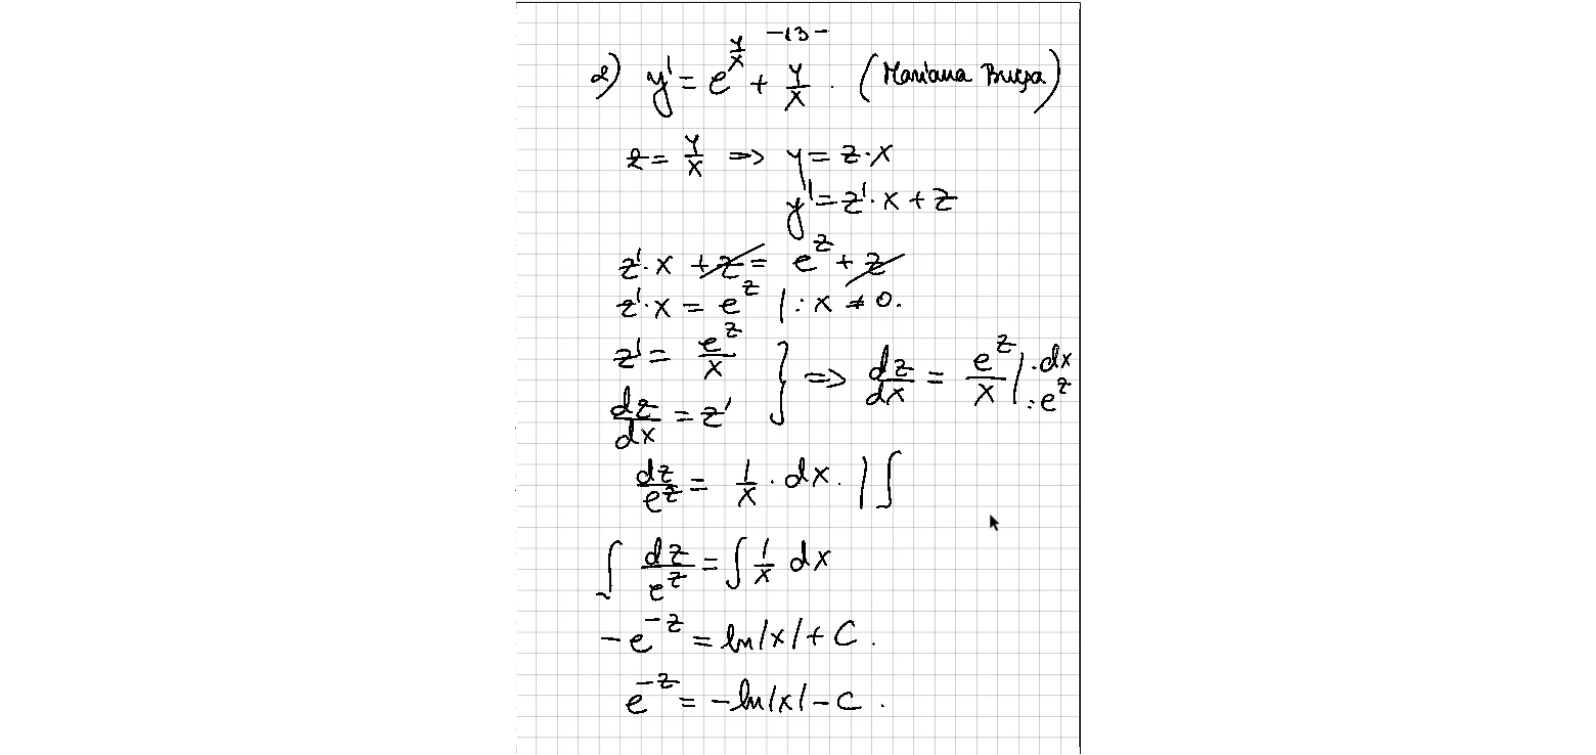 -13-
2) y' = e^{y/x} + y/x . (Mariana Bucșa)
z = y/x => y = z·x
y' = z'·x + z
z'·x + z = e^z + z
z'·x = e^z |: x ≠ 0.
z' = e^z/x } => dz/dx = e^z/x |·dx :e^z
dz/dx = z'
dz/e^z = 1/x · dx. | ∫
∫ dz/e^z = ∫ 1/x dx
-e^{-z} = ln|x| + C.
e^{-z} = -ln|x| - C.